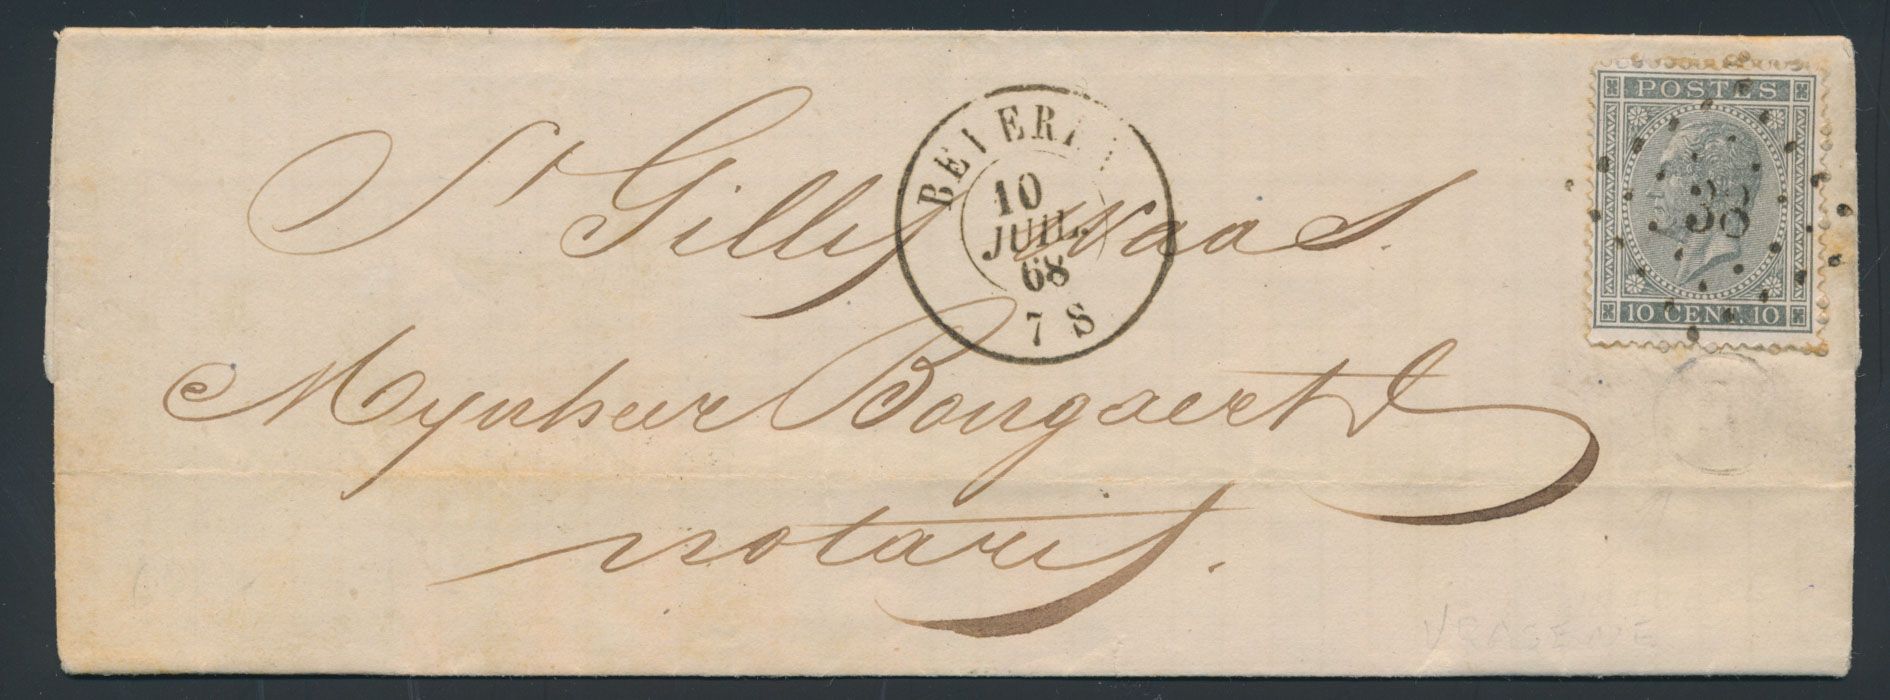 St Gillis waas.
Mynheer Bongaerts
notaris.
BEVEREN
10
JUIL.
68
7 S
POSTES
38
10 CENT. 10
VRASENE